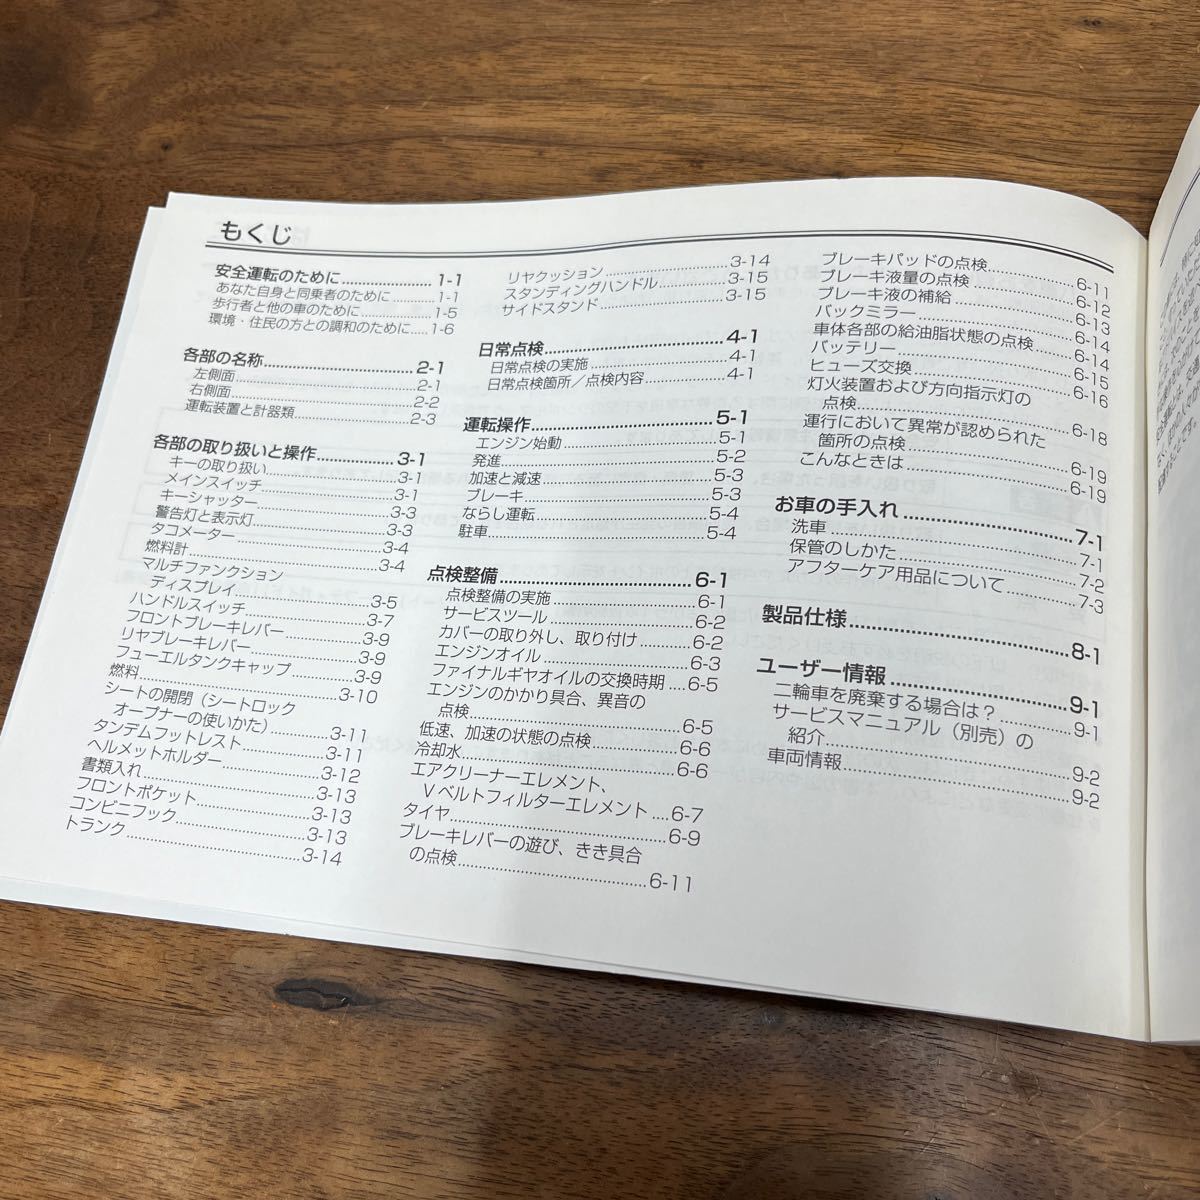 もくじ
安全運転のために 1-1
あなた自身と同乗者のために 1-1
歩行者と他の車のために 1-5
環境・住民の方との調和のために 1-6
各部の名称 2-1
左側面 2-1
右側面 2-2
運転装置と計器類 2-3
各部の取り扱いと操作 3-1
キーの取り扱い 3-1
メインスイッチ 3-1
キーシャッター 3-3
警告灯と表示灯 3-3
タコメーター 3-4
燃料計 3-4
マルチファンクション
ディスプレイ 3-5
ハンドルスイッチ 3-7
フロントブレーキレバー 3-9
リヤブレーキレバー 3-9
フューエルタンクキャップ 3-9
燃料 3-10
シートの開閉（シートロック
オープナーの使いかた） 3-11
タンデムフットレスト 3-11
ヘルメットホルダー 3-12
書類入れ 3-13
フロントポケット 3-13
コンビニフック 3-13
トランク 3-14
リヤクッション 3-14
スタンディングハンドル 3-15
サイドスタンド 3-15
日常点検 4-1
日常点検の実施 4-1
日常点検箇所／点検内容 4-1
運転操作 5-1
エンジン始動 5-1
発進 5-2
加速と減速 5-3
ブレーキ 5-3
ならし運転 5-4
駐車 5-4
点検整備 6-1
点検整備の実施 6-1
サービスツール 6-2
カバーの取り外し、取り付け 6-2
エンジンオイル 6-3
ファイナルギヤオイルの交換時期 6-5
エンジンのかかり具合、異音の
点検 6-5
低速、加速の状態の点検 6-6
冷却水 6-6
エアクリーナーエレメント、
Vベルトフィルターエレメント 6-7
タイヤ 6-9
ブレーキレバーの遊び、きき具合
の点検 6-11
ブレーキパッドの点検 6-11
ブレーキ液量の点検 6-12
ブレーキ液の補給 6-13
バックミラー 6-14
車体各部の給油脂状態の点検 6-14
バッテリー 6-15
ヒューズ交換 6-16
灯火装置および方向指示灯の
点検 6-18
運行において異常が認められた
箇所の点検 6-19
こんなときは 6-19
お車の手入れ 7-1
洗車 7-1
保管のしかた 7-2
アフターケア用品について 7-3
製品仕様 8-1
ユーザー情報 9-1
二輪車を廃棄する場合は？ 9-1
サービスマニュアル（別売）の
紹介 9-2
車両情報 9-2